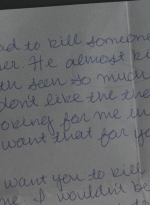 ad to kill someone
her. He almost ki
en seen so much
don't like the tho
oking for me in
want that for yo
want you to kill
me. I wouldn't be